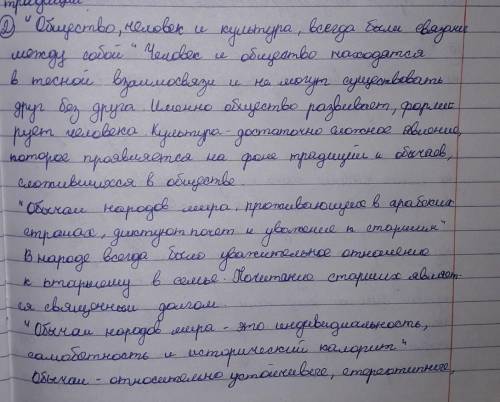 традиции
2) "Общество, человек и культура, всегда были связаны
между собой" Человек и общество находятся
в тесной взаимосвязи и не могут существовать
друг без друга. Именно общество развивает, форми
рует человека. Культура - достаточно сложное явление,
которое проявляется на фоне традиций и обычаев,
сложившихся в обществе.
"Обычаи народов мира, проживающих в арабских
странах, диктуют почет и уважение к старшим"
В народе всегда было уважительное отношение
к старшему в семье. Почитание старших являет-
ся священным долгом
"Обычаи народов мира - это индивидиальность,
самобытность и исторический калорит"
Обычаи - относительно устойчивые, стереотипные,